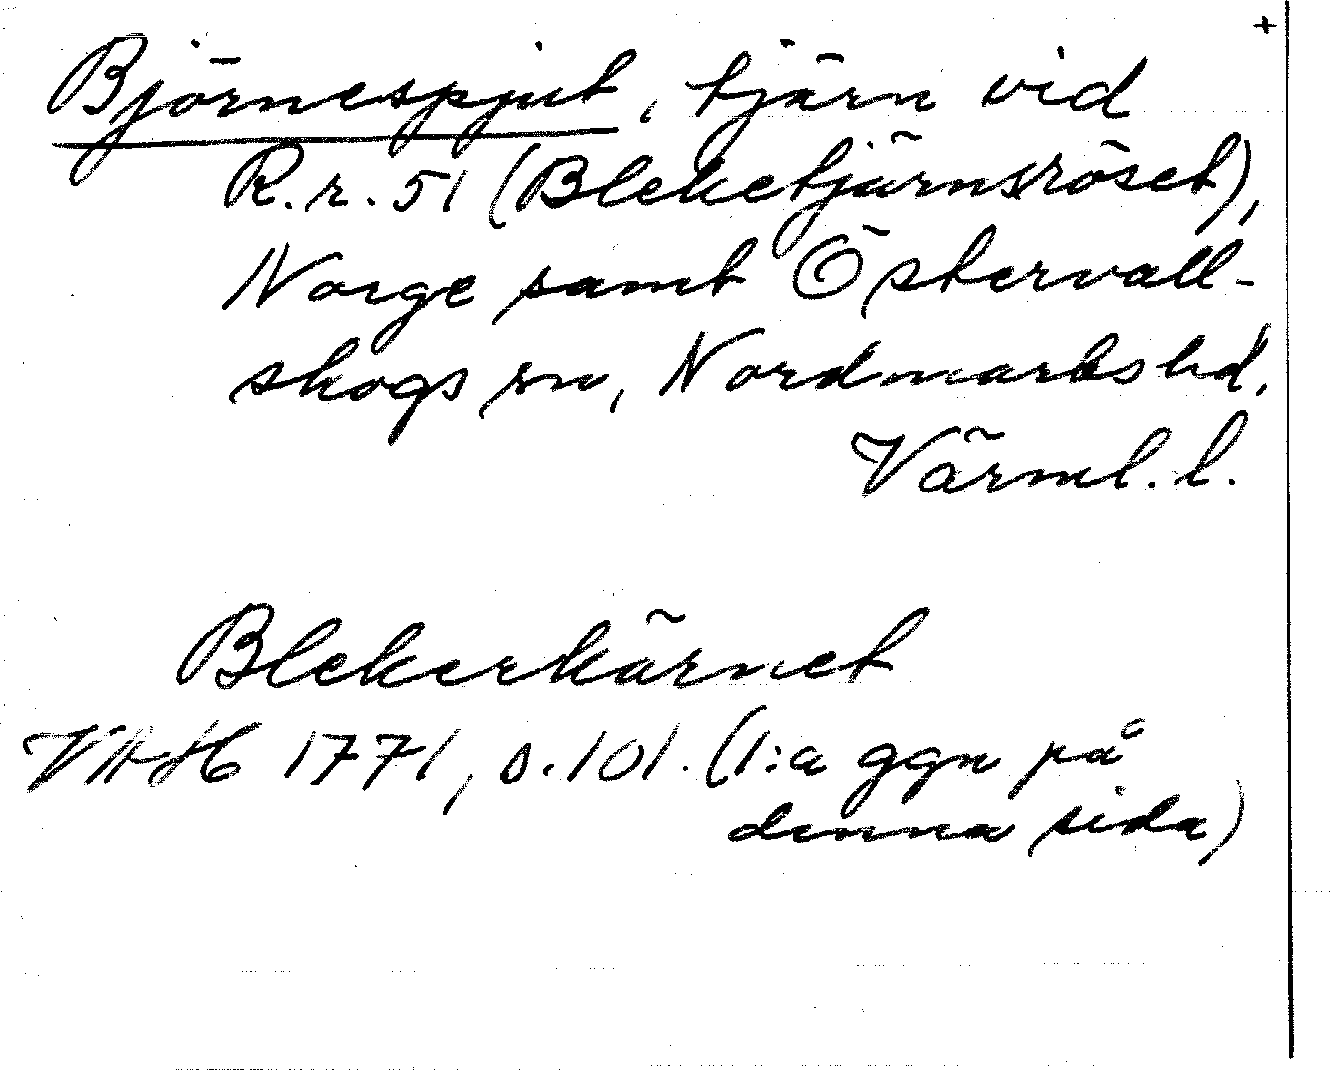 +
Björnespjut, tjärn vid
R.r. 51 (Bleketjärnsröset),
Norge samt Östervall-
skogs sn, Nordmarks hd,
Värml. l.
Blekerkärnet
1771, s. 101. (1:a ggn på
denna sida)